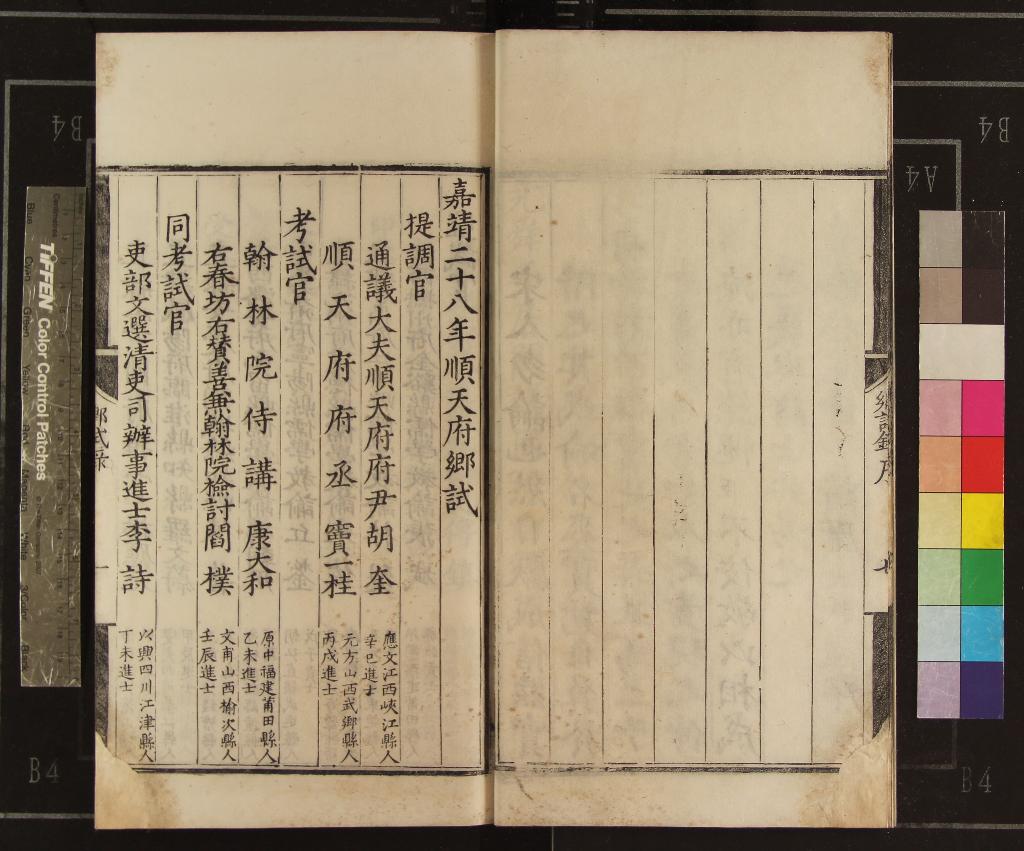 鄉試錄序
七
嘉靖二十八年順天府鄉試
提調官
通議大夫順天府府尹胡奎
應文江西峽江縣人
辛巳進士
順天府府丞竇一桂
元方山西武鄉縣人
丙戌進士
考試官
翰林院侍講康大和
原中福建莆田縣人
乙未進士
右春坊右贊善兼翰林院檢討閻樸
文甫山西榆次縣人
壬辰進士
同考試官
吏部文選清吏司辦事進士李詩
以興四川江津縣人
丁未進士
鄉試錄
一
TIFFEN Color Control Patches
B4
B4
A4
B4
B4